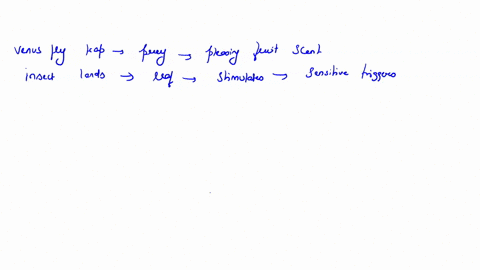 venus fly trap → prey → pleasing fruit scent
insect lands → leaf → stimulates → sensitive triggers